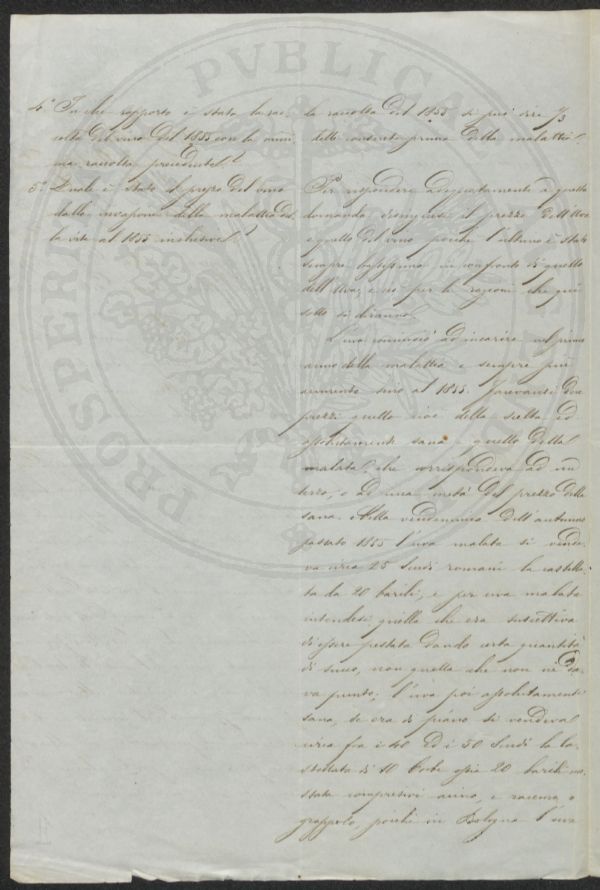 4.° In che rapporto è stata la rac-
colta del vino del 1855 con la mini-
ma raccolta precedente?
5.° Quale è stato il prezzo del vino
dalla invasione della malattia del-
la vite al 1855 inclusive?
la raccolta del 1855 si può dire 1/3
delle consuete prima della malattia.
Per rispondere adequatamente a questa
domanda distinguesi il prezzo dell'Uva
e quello del vino, poiché l'ultimo è stato
sempre bassissimo in confronto di quello
dell'Uva, e ciò per le ragioni che qui
sotto si diranno.
L'uva cominciò ad incarire nel primo
anno della malattia e sempre più
aumentò sino al 1855. Facevansi due
prezzi quello cioè della scelta, ed
assolutamente sana, e quello della
malata, che corrispondeva ad un
terzo, o ad una metà del prezzo della
sana. Nella vendemmia dell'autunno
passato 1855 l'uva malata si vende-
va circa 25 Scudi romani la castella-
ta da 20 barili, e per uva malata
intendesi quella che era suscettiva
di essere pestata dando certa quantità
di succo, non quella che non ne da-
va punto; l'uva poi assolutamente
sana, se era di piano si vendeva
circa fra i 40 ed i 50 Scudi la Ca-
stellata di 10 Corbe ossia 20 barili
compresivi acino, e racemo o
grappolo, poiché in Bologna l'uva
PVBLICA
PROSPERI